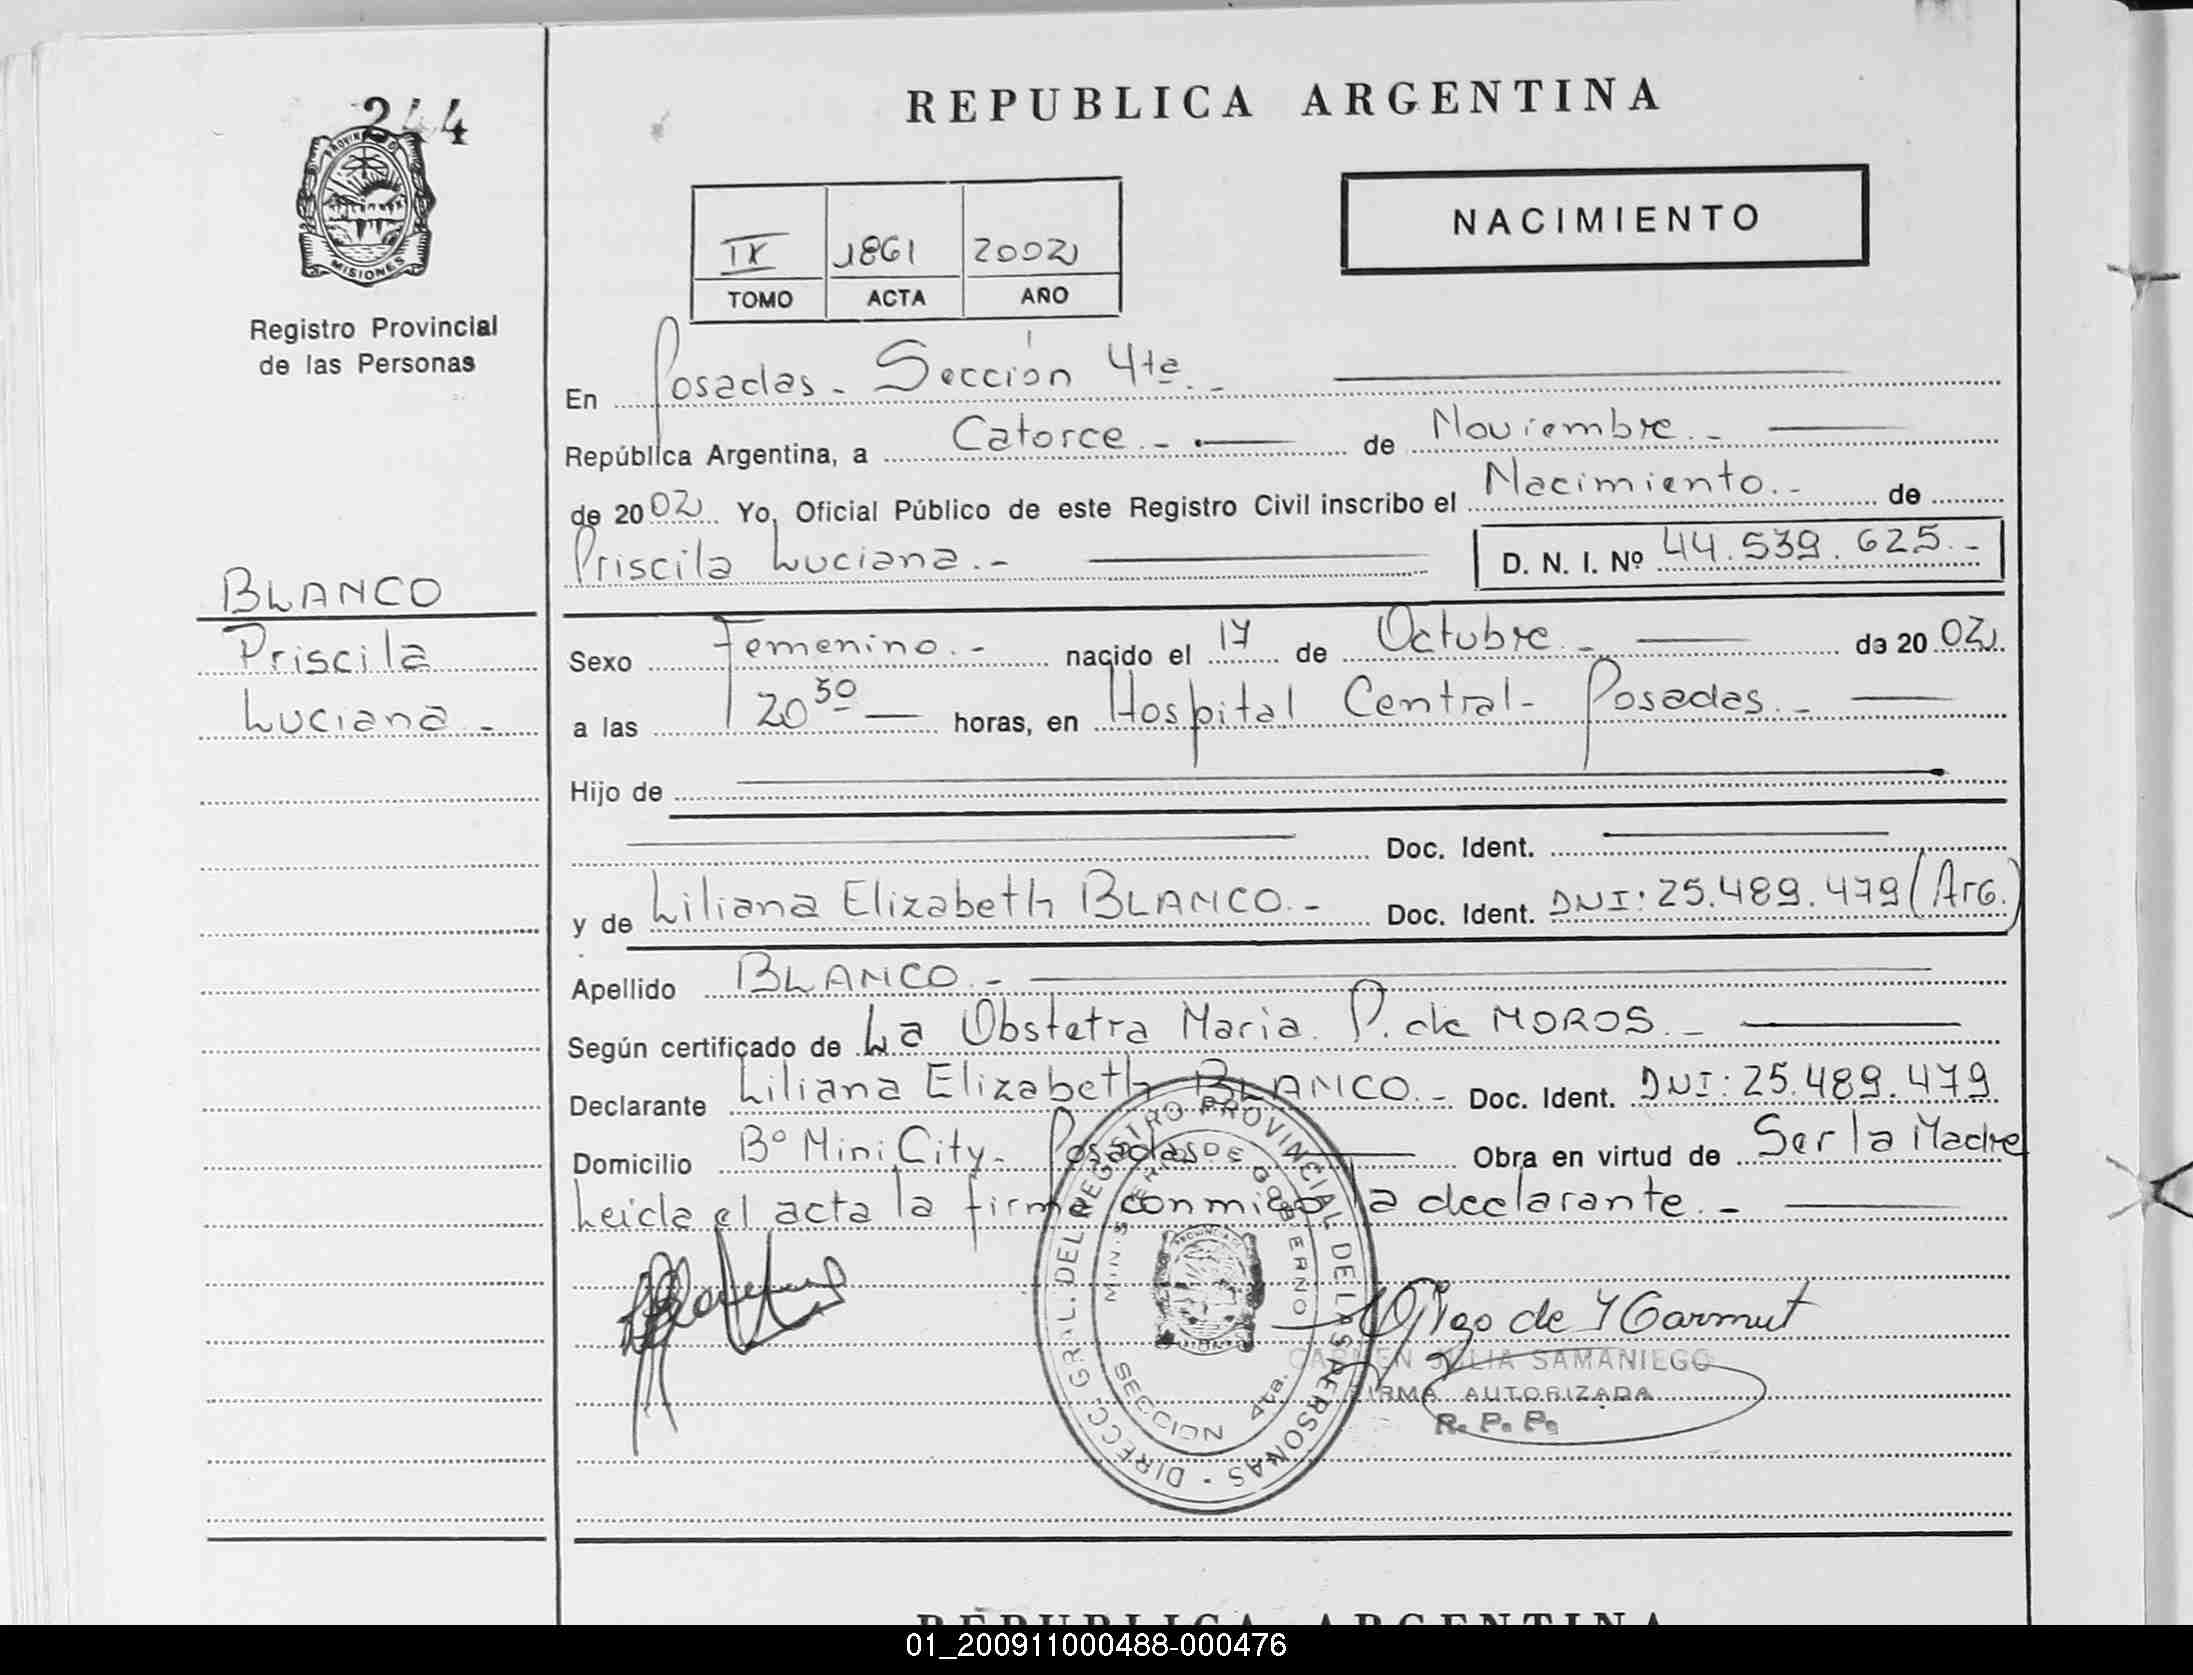 244
PROVINCIA DE
MISIONES
Registro Provincial
de las Personas
REPUBLICA ARGENTINA
NACIMIENTO
IX 1861 2002
TOMO ACTA AÑO
En Posadas - Sección 4ta. -
República Argentina, a Catorce. - de Noviembre. -
de 2002 Yo, Oficial Público de este Registro Civil inscribo el Nacimiento. - de
Priscila Luciana. - D. N. I. Nº 44.539.625. -
BLANCO
Priscila
Luciana -
Sexo Femenino. - nacido el 17 de Octubre - de 2002
a las 20 30 horas, en Hospital Central - Posadas. -
Hijo de
Doc. Ident.
y de Liliana Elizabeth BLANCO. - Doc. Ident. DNI: 25.489.479 (Arg.)
Apellido BLANCO. -
Según certificado de La Obstetra Maria P. de MOROS. -
Declarante Liliana Elizabeth BLANCO. - Doc. Ident. DNI: 25.489.479
Domicilio Bº Mini City - Posadas Obra en virtud de Ser la Madre
Leida el acta la firma conmigo la declarante. -
DIRECC. GRAL. DEL REGISTRO PROVINCIAL DE LAS PERSONAS -
MINISTERIO DE GOBIERNO
SECCION 4ta.
CARMEN JULIA SAMANIEGO
FIRMA AUTORIZADA
R. P. P.
REPUBLICA ARGENTINA
01_200911000488-000476